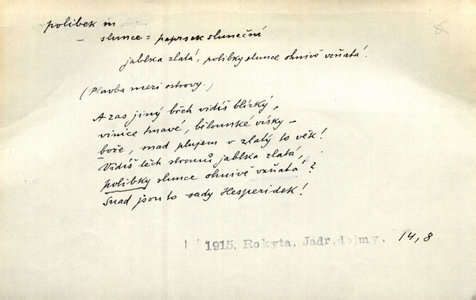 polibek m
– slunce = paprsek sluneční
jablka zlatá, polibky slunce ohnivě vzňatá.
(Plavba mezi ostrovy.)
A zas jiný břeh vidíš blízký,
vinice tmavé, bělounké vísky –
bože, snad plujem v zlatý to věk!
Vidíš těch stromů jablka zlatá,
polibky slunce ohnivě vzňatá?
Snad jsou to sady Hesperidek!
1915. Rokyta, Jadr. dojmy. 14, 8